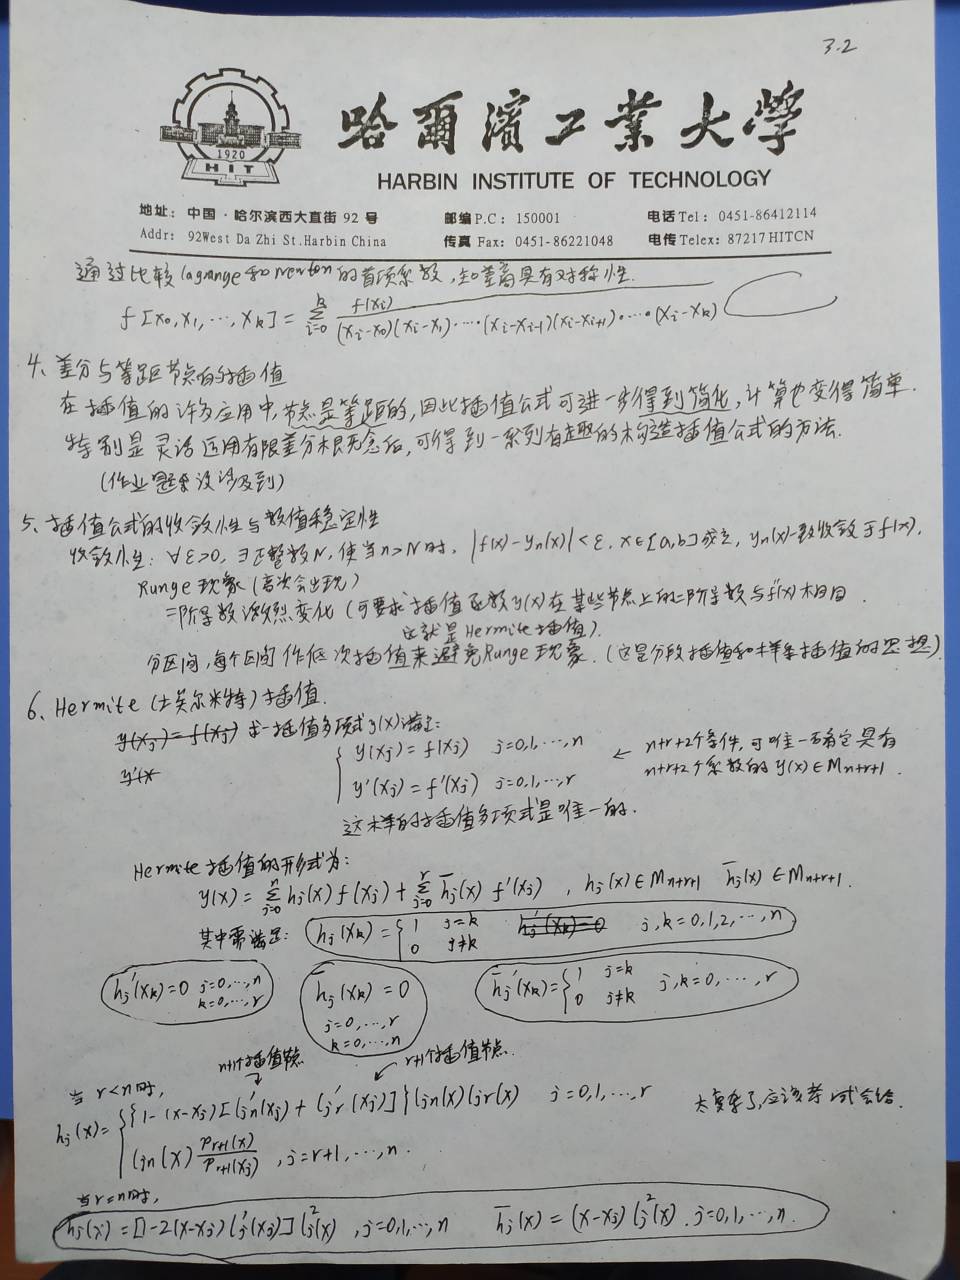 3.2
1920
HIT
哈爾濱工業大學
HARBIN INSTITUTE OF TECHNOLOGY
地址：中国·哈尔滨西大直街 92 号 邮编 P.C: 150001 电话 Tel: 0451-86412114
Addr: 92West Da Zhi St.Harbin China 传真 Fax: 0451-86221048 电传 Telex: 87217HITCN
通过比较 lagrange 和 newton 的首项系数，知差商具有对称性.
f[x₀, x₁, ⋯, x_k] = Σ_{i=0}^{k} f(x_i) / (x_i-x₀)(x_i-x₁)⋯⋯(x_i-x_{i-1})(x_i-x_{i+1})⋯⋯(x_i-x_k)
4、差分与等距节点的插值
在插值的许多应用中，节点是等距的，因此插值公式可进一步得到简化，计算也变得简单.
特别是灵活运用有限差分概念后，可得到一系列有趣的构造插值公式的方法.
(作业题未涉及到)
5、插值公式的收敛性与数值稳定性
收敛性：∀ε>0, ∃正整数N, 使当n>N时, |f(x)-y_n(x)|<ε, x∈[a,b]成立, y_n(x)一致收敛于f(x),
Runge 现象 (高次会出现)
二阶导数激烈变化 (可要求插值函数y(x)在某些节点上的二阶导数与f''(x)相同.
这就是Hermite插值).
分区间，每个区间作低次插值来避免Runge现象. (这是分段插值和样条插值的思想)
6、Hermite (埃尔米特) 插值.
y(x_j)=f(x_j) 求一插值多项式y(x)满足:
y'(x
{ y(x_j) = f(x_j) j=0,1,⋯,n
y'(x_j) = f'(x_j) j=0,1,⋯,r
← n+r+2个条件, 可唯一确定具有
n+r+2个系数的y(x)∈M_{n+r+1}.
这样的插值多项式是唯一的.
Hermite 插值的形式为:
y(x) = Σ_{j=0}^{n} h_j(x) f(x_j) + Σ_{j=0}^{r} h̄_j(x) f'(x_j) , h_j(x)∈M_{n+r+1} h̄_j(x)∈M_{n+r+1}.
其中需满足: h_j(x_k) = { 1 j=k 0 j≠k h_j'(x_k)=0 j,k=0,1,2,⋯,n
h_j'(x_k)=0 j=0,⋯,n k=0,⋯,r
h̄_j(x_k)=0 j=0,⋯,r k=0,⋯,n
h̄_j'(x_k)={ 1 j=k 0 j≠k j,k=0,⋯,r
n+1个插值节点 r+1个插值节点.
当 r<n 时,
h_j(x) = { {1-(x-x_j)[l'_{jn}(x_j)+l'_{jr}(x_j)]} l_{jn}(x) l_{jr}(x) j=0,1,⋯,r
l_{jn}(x) p_{r+1}(x)/p_{r+1}(x_j) , j=r+1,⋯,n.
太复杂了, 应该考试会给.
当 r=n 时,
h_j(x) = [1-2(x-x_j) l'_j(x_j)] l_j²(x) , j=0,1,⋯,n h̄_j(x) = (x-x_j) l_j²(x). j=0,1,⋯,n.